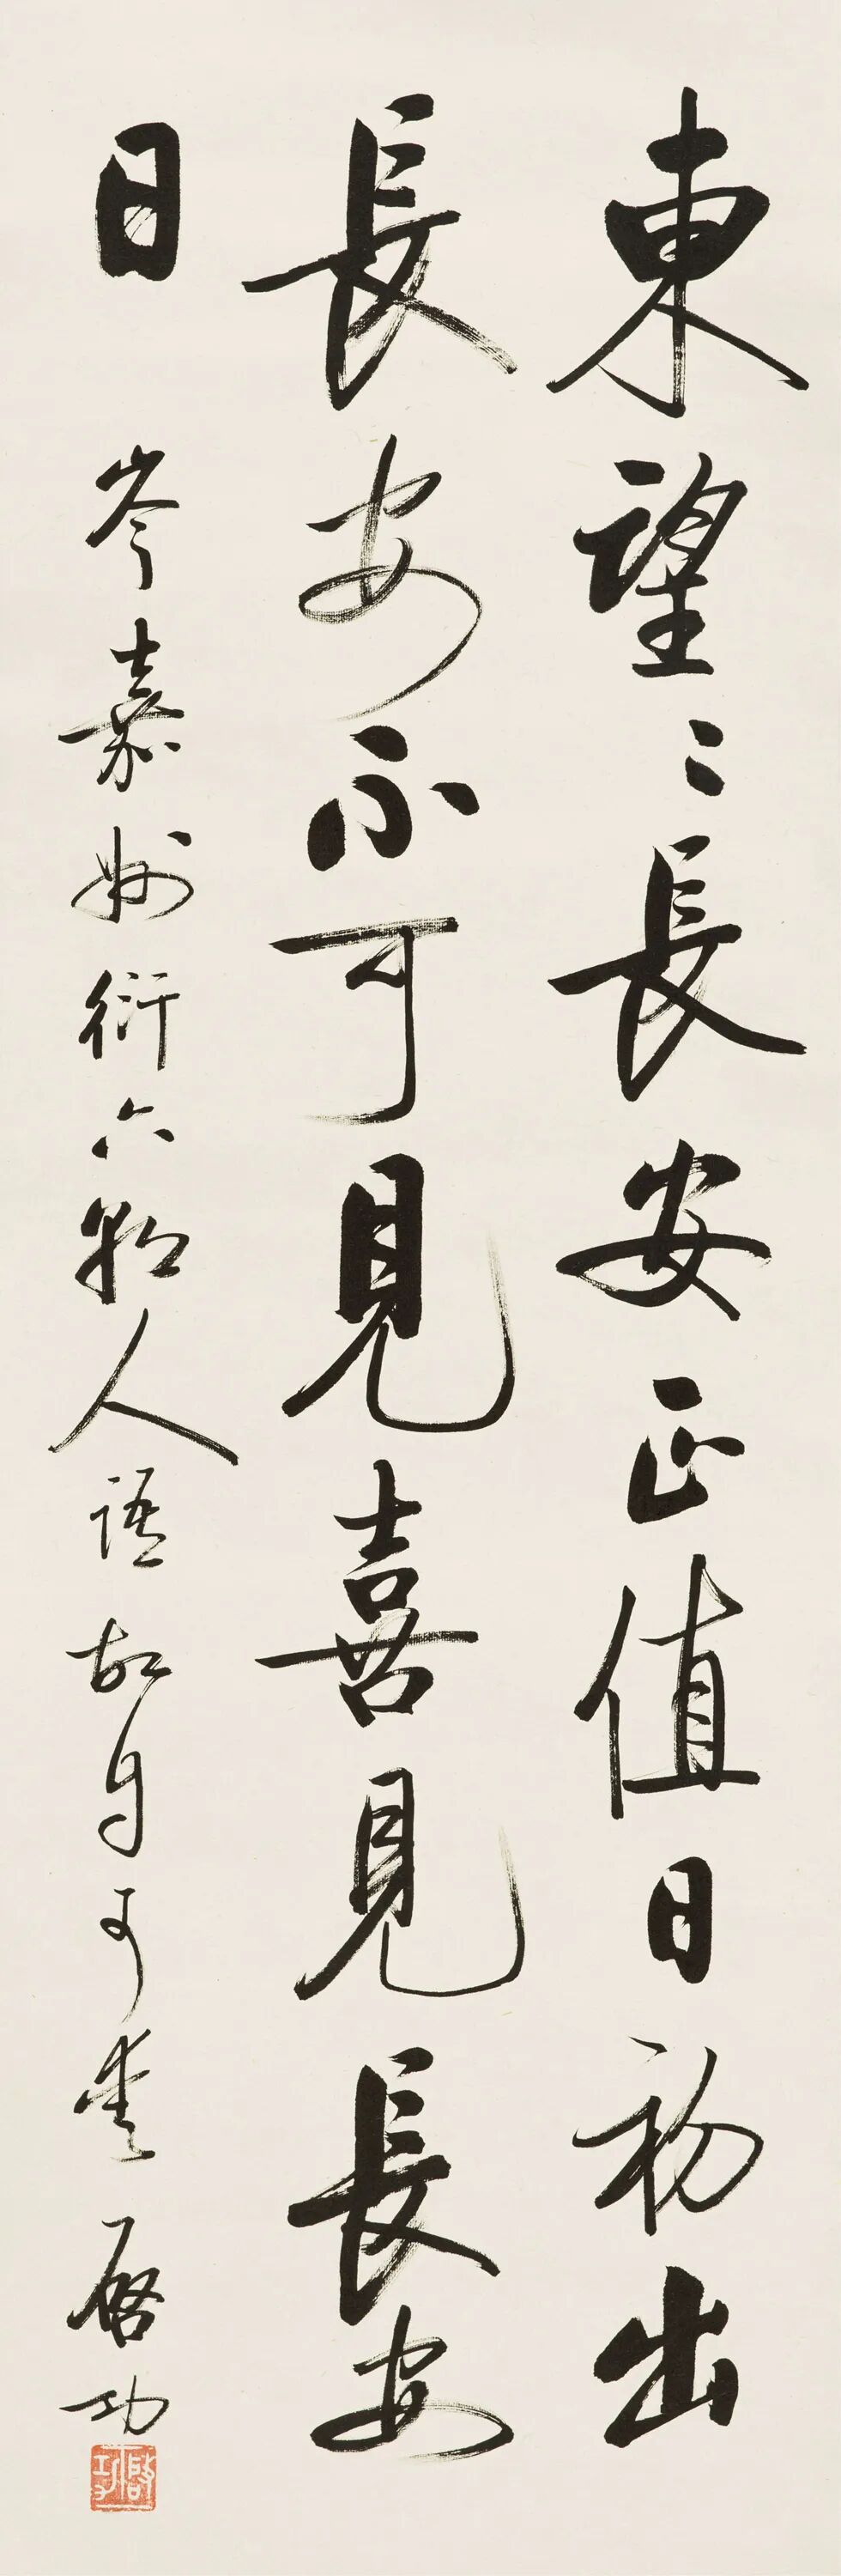 東望〻長安正值日初出
長安不可見喜見長安
日 岑嘉州衍六朝人語故自可愛 啟功
啟功